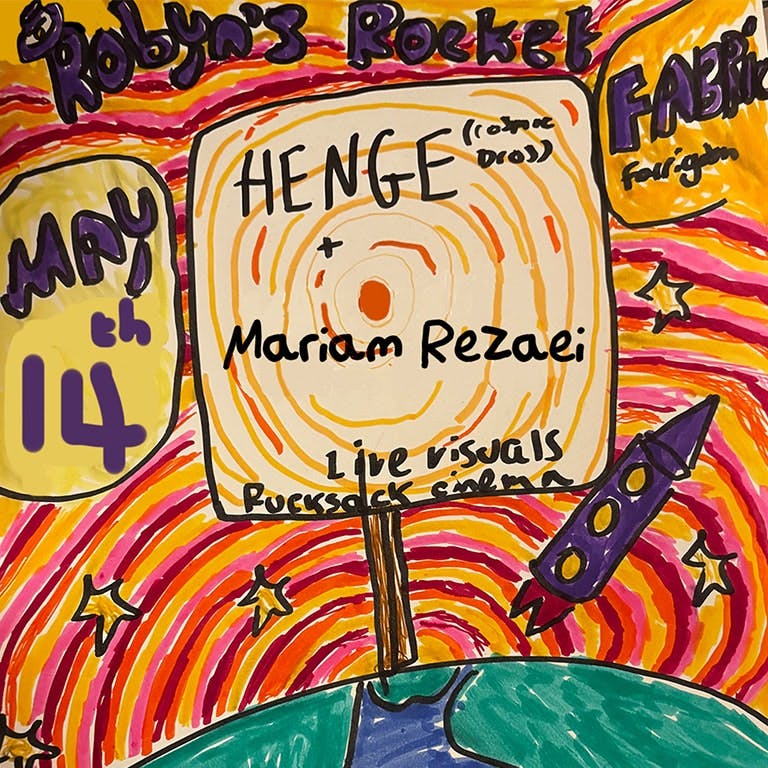 Robyn's Rocket
FABRIC
MAY
14th
HENGE (cosmic
Dross)
+
Mariam Rezaei
Live visuals
Rucksack cinema